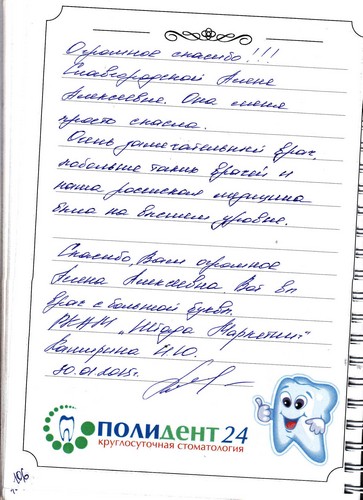 Огромное спасибо!!!
Славгородской Алене
Алексеевне. Она меня
просто спасла.
Очень замечательный врач,
побольше таких врачей и
наша россиская медицина
была на высшем уровне.
Спасибо Вам огромное
Алена Алексеевна Вот вы
врас с большой буквы.
Маркетинг"
Каширина И.Ю.
30.01.2015г.
ПОЛИДЕНТ 24
круглосуточная стоматология
106